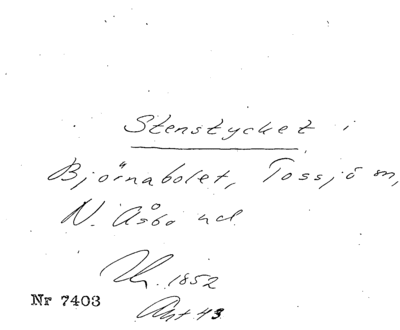 Stenstycket i
Björnabolet, Tossjö m,
N. Åsbo hd
1852
Nr 7403
Akt 43